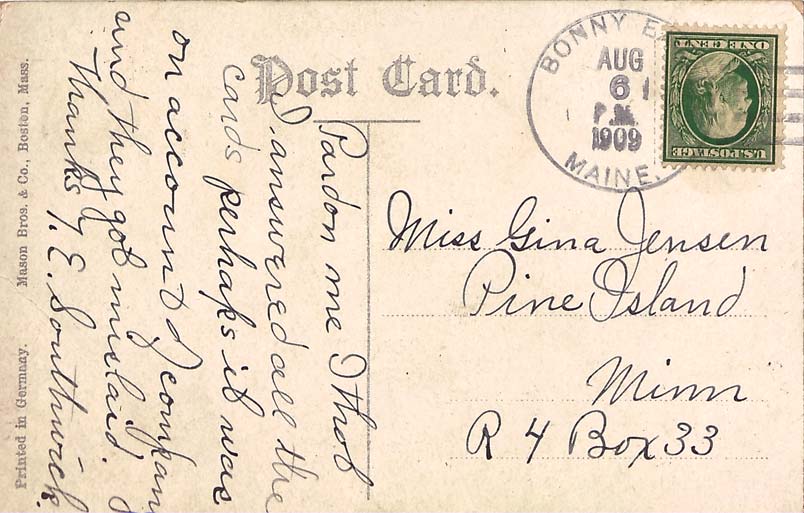 Post Card.
BONNY E
AUG
6
P.M.
1909
MAINE.
ONE CENT
U.S. POSTAGE
Miss Gina Jensen
Pine Island
Minn
R 4 Box 33
Pardon me I thot
I answered all the
cards perhaps it was
on account of company
and they got mislaid.
Thanks T. E. Southwick.
Printed in Germany. Mason Bros. & Co., Boston, Mass.